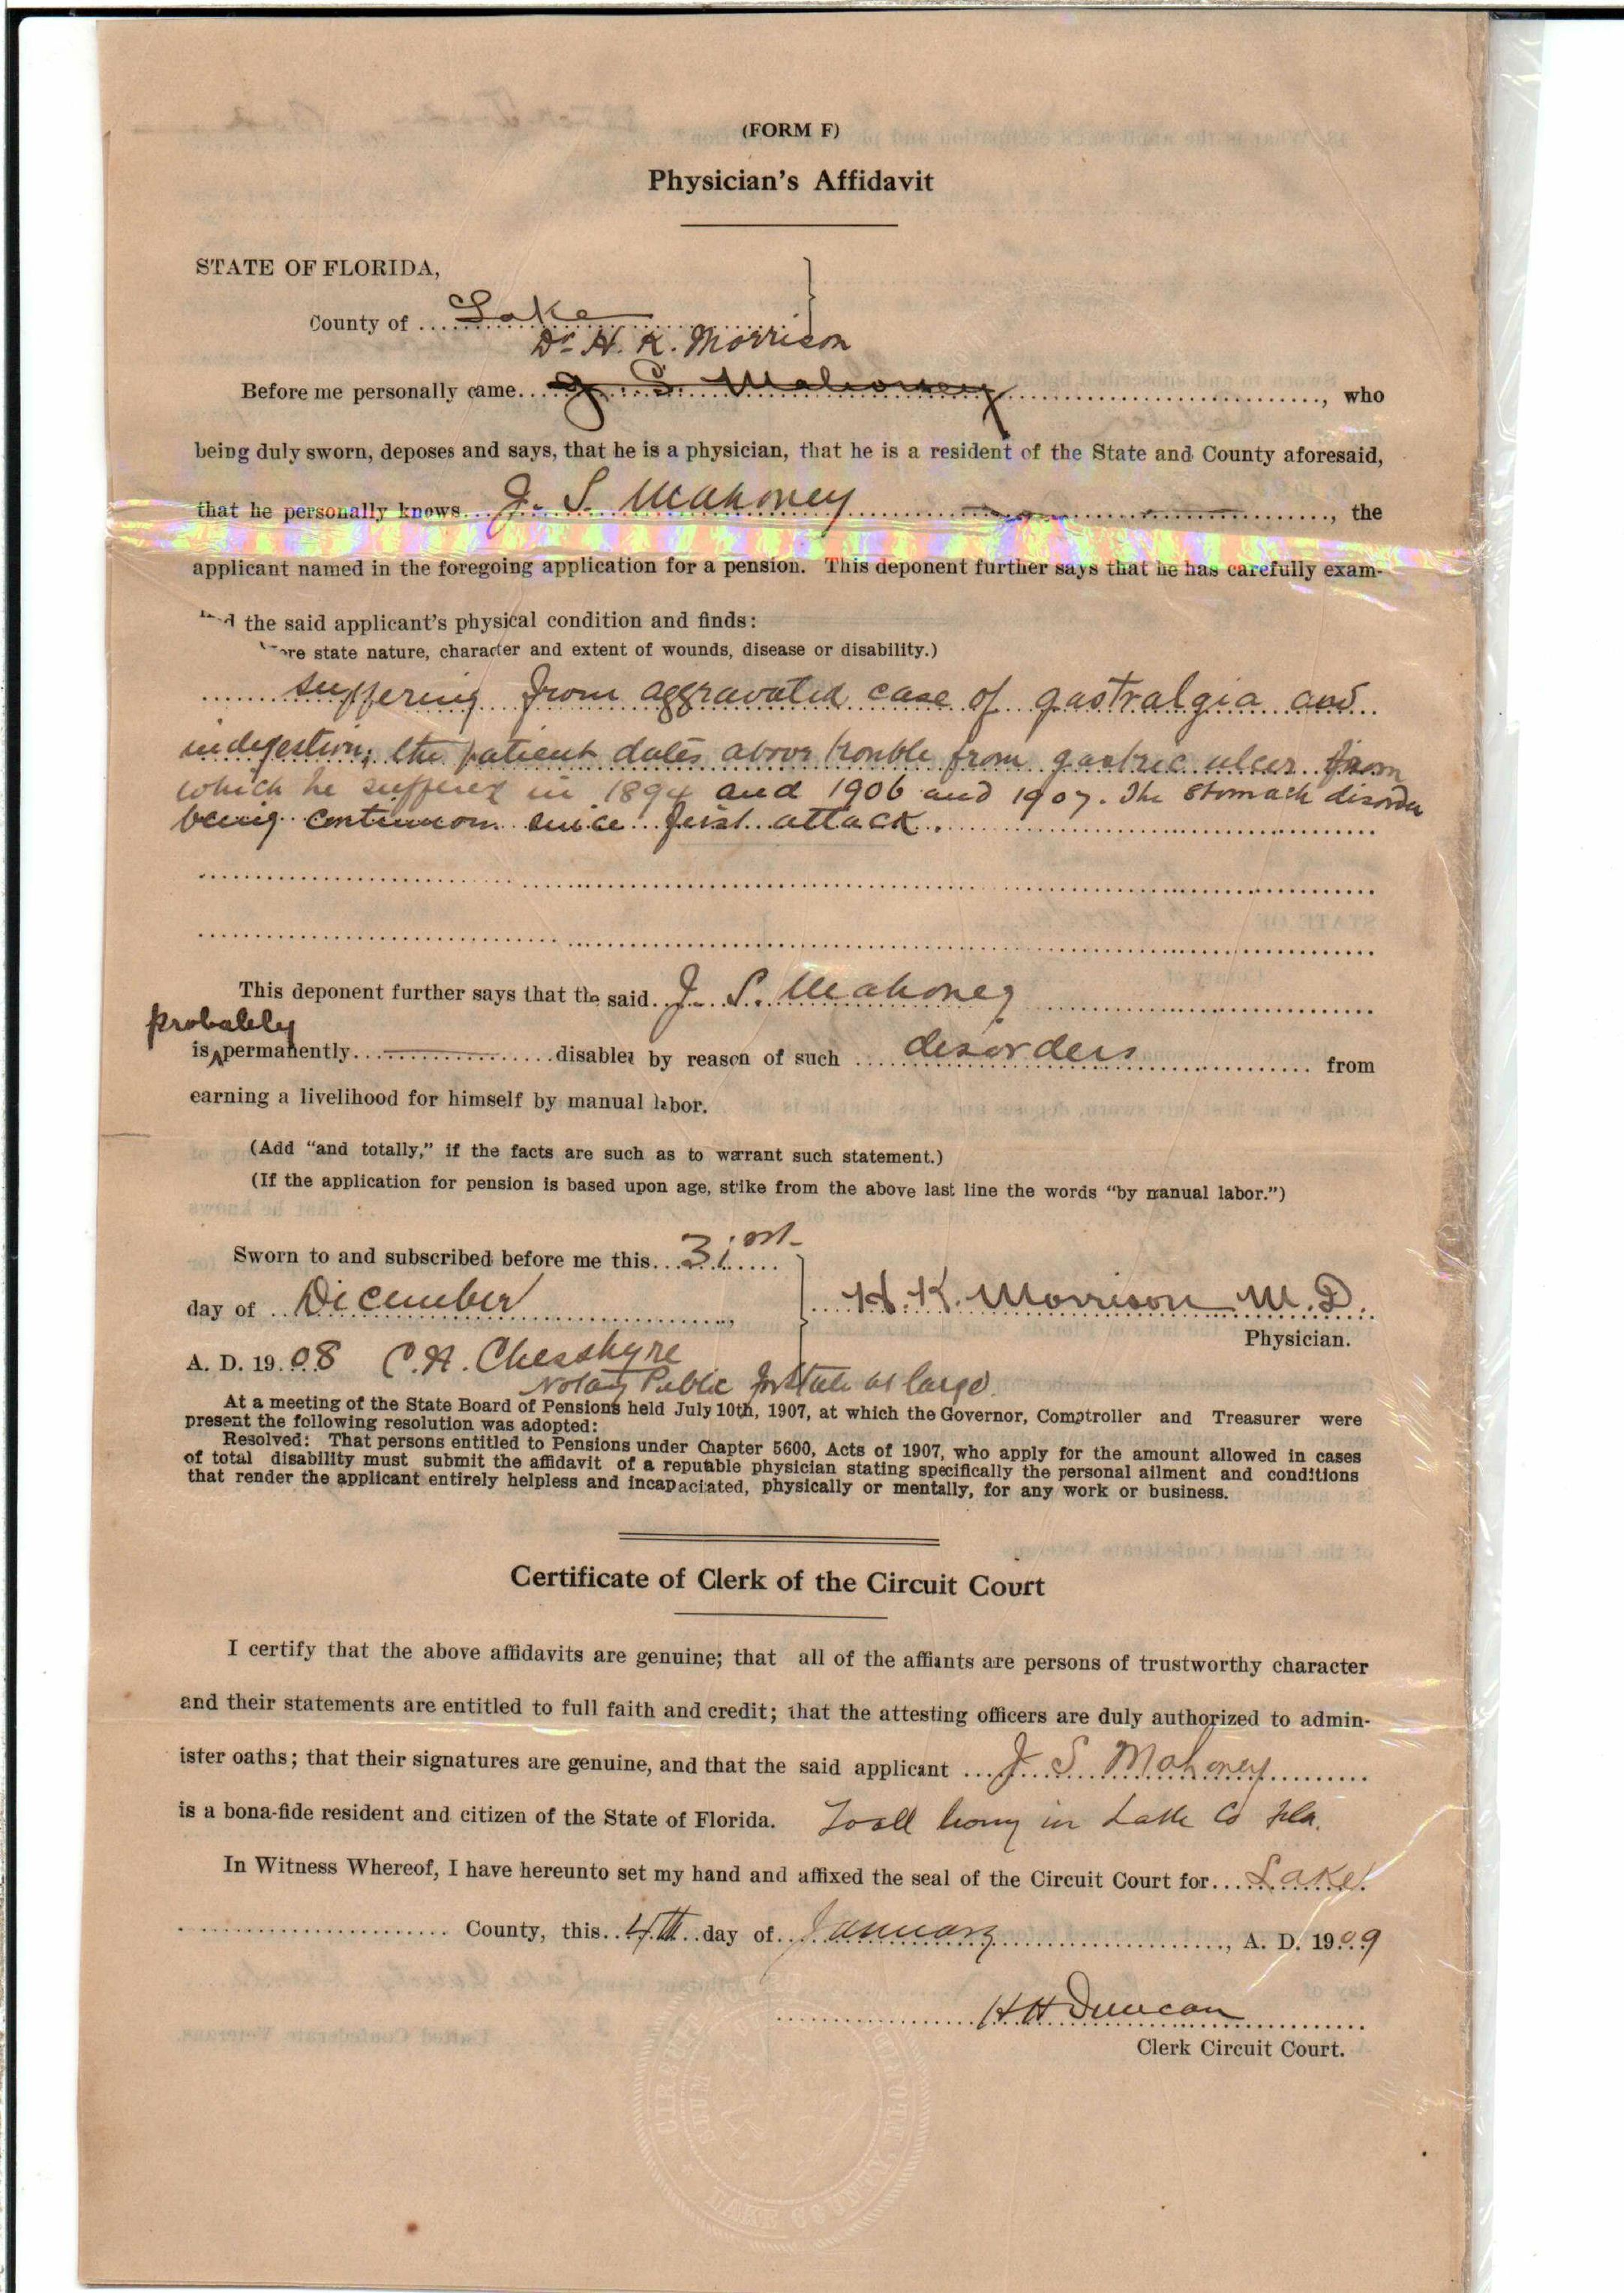 (FORM F)
Physician's Affidavit
STATE OF FLORIDA,
County of Lake
Dr H. K. Morrison
Before me personally came J. S. Mahoney, who
being duly sworn, deposes and says, that he is a physician, that he is a resident of the State and County aforesaid,
that he personally knows J. S. Mahoney, the
applicant named in the foregoing application for a pension. This deponent further says that he has carefully exam-
the said applicant's physical condition and finds:
state nature, character and extent of wounds, disease or disability.)
suffering from aggravated case of gastralgia and
indigestion; the patient dates above trouble from gastric ulcer from
which he suffered in 1894 and 1906 and 1907. The stomach disorder
being continuous since first attack.
This deponent further says that the said J. S. Mahoney
probably
is permanently disabled by reason of such disorders from
earning a livelihood for himself by manual labor.
(Add "and totally," if the facts are such as to warrant such statement.)
(If the application for pension is based upon age, strike from the above last line the words "by manual labor.")
Sworn to and subscribed before me this 31st
day of December,
H. K. Morrison M. D.
Physician.
A. D. 1908 C. H. Chesshyre
Notary Public for State at large.
At a meeting of the State Board of Pensions held July 10th, 1907, at which the Governor, Comptroller and Treasurer were
present the following resolution was adopted:
Resolved: That persons entitled to Pensions under Chapter 5600, Acts of 1907, who apply for the amount allowed in cases
of total disability must submit the affidavit of a reputable physician stating specifically the personal ailment and conditions
that render the applicant entirely helpless and incapaciated, physically or mentally, for any work or business.
Certificate of Clerk of the Circuit Court
I certify that the above affidavits are genuine; that all of the affiants are persons of trustworthy character
and their statements are entitled to full faith and credit; that the attesting officers are duly authorized to admin-
ister oaths; that their signatures are genuine, and that the said applicant J. S. Mahoney
is a bona-fide resident and citizen of the State of Florida. in Lake Co Fla.
In Witness Whereof, I have hereunto set my hand and affixed the seal of the Circuit Court for Lake
County, this 4th day of January, A. D. 1909
H H Duncan
Clerk Circuit Court.